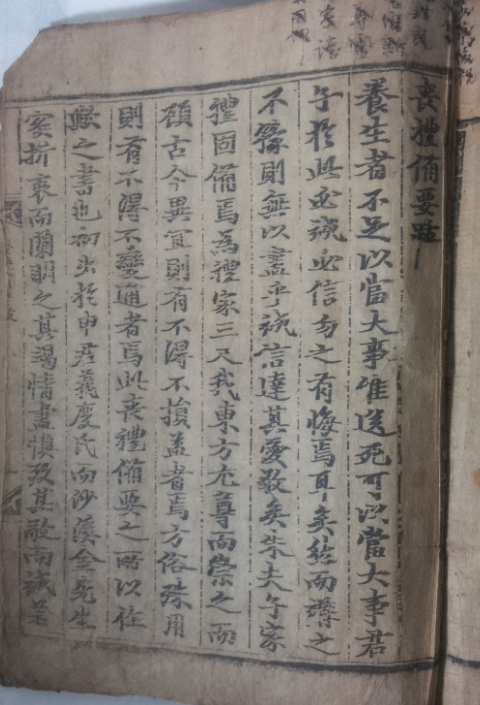 喪禮備要跋
養生者不足以當大事唯送死可以當大事君
子於此必誠必信勿之有悔焉耳矣然而講之
不豫則無以盡乎誠信達其愛敬矣朱夫子家
禮固備焉為禮家三尺我東方尤尊而崇之而
顧古今異宜則有不得不損益者焉方俗殊用
則有不得不變通者焉此喪禮備要之所以作
之書也初出於申君義慶氏而沙溪金先生
實折衷而闡明之其竭情盡慎致其敬而誠若